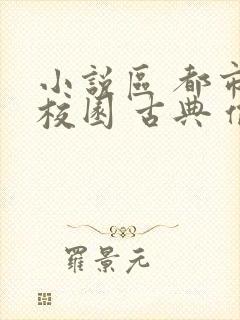 小說區 都市
校園 古典
羅景元